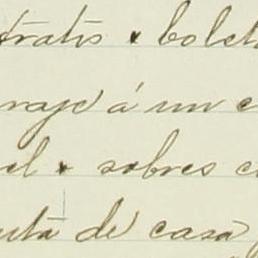 tratis x bolet
raje á un c
el x sobres c
uta de casa y